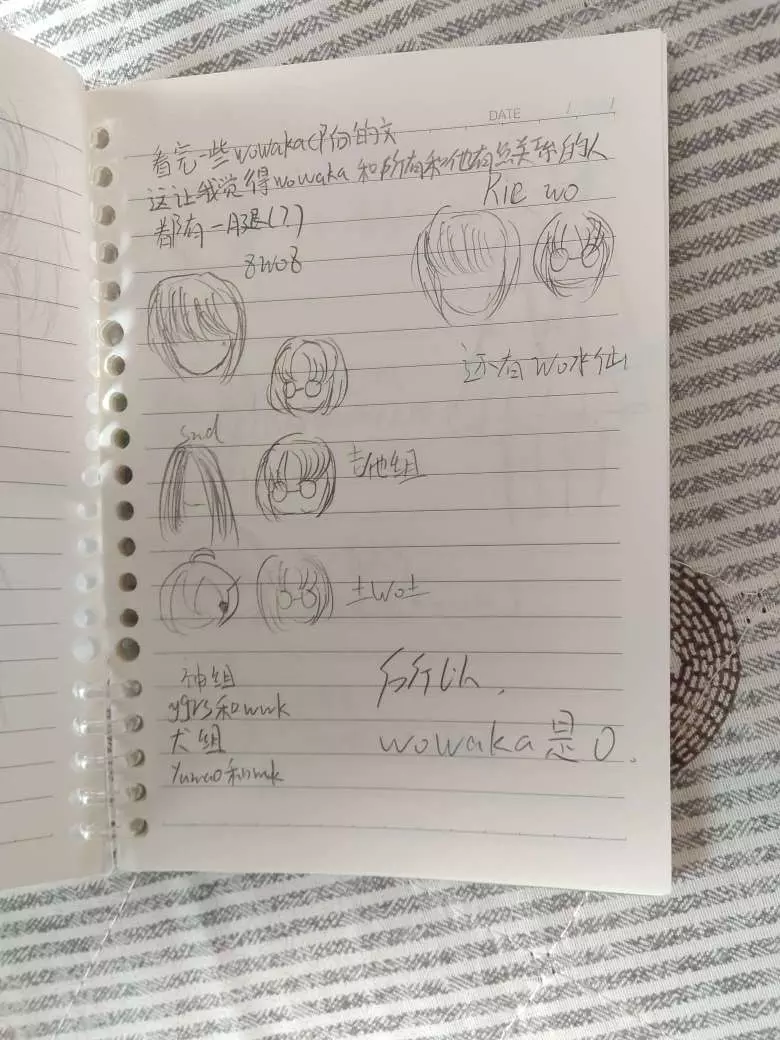 DATE
看完一些wowakaCP向的文
这让我觉得wowaka和所有和他有点关系的人
都有一腿(?)
kie wo
8wo8
还有wo水仙
snd
吉他组
士wo士
神组
ygrs和wwk
犬组
Yumao和wwk
wowaka是0.